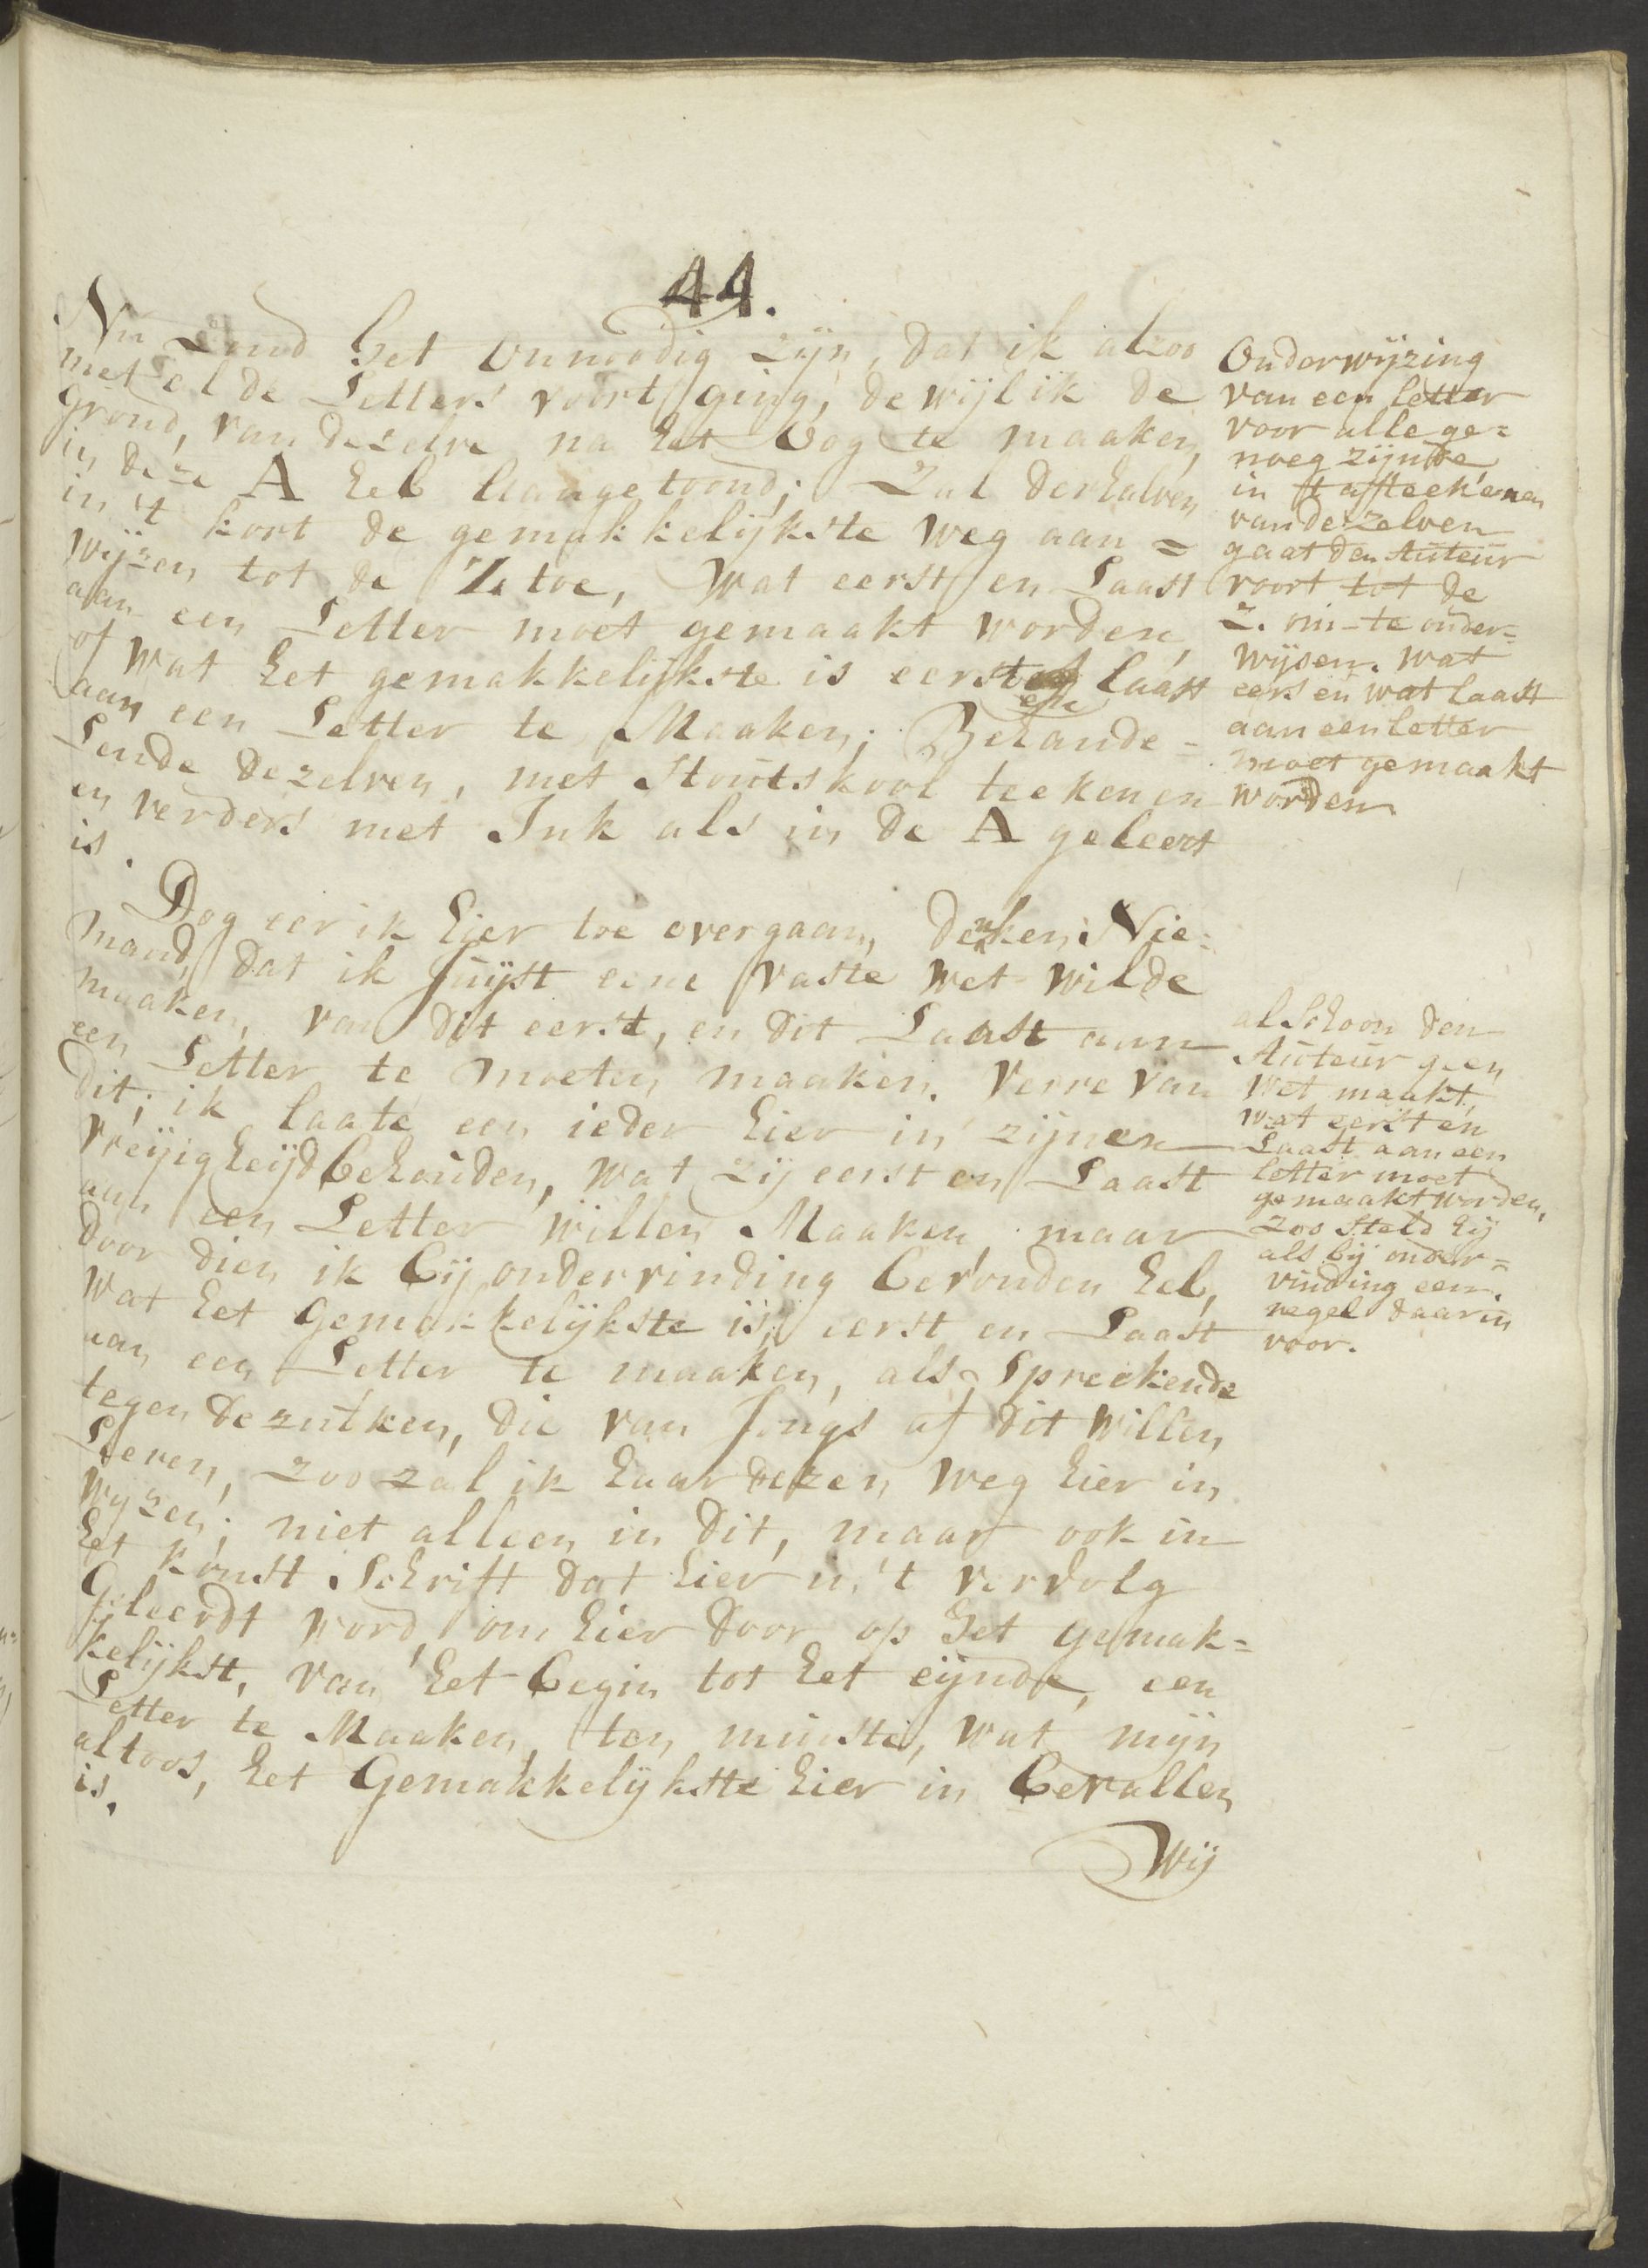 44.
Nu zoud het onnoodig zijn, dat ik alzoo
met al de Letters voort ging, dewijl ik de
grond, van dezelve na het Oog te maaken,
in deze A heb aangetoond; Zal derhalven
in 't kort de gemakkelijkste weg aan =
wijzen tot de Z toe, wat eerst en Laast
aan een Letter moet gemaakt worden,
of wat het gemakkelijkste is eerst en laast
aan een Letter te Maaken; Behande =
Lende dezelven, met Houtskool teekenen
en verders met Ink als in de A geleert
is.
Dog eer ik hier toe overgaan, denken Nie=
mand, dat ik Juÿst eene vaste wet wilde
maaken, van dit eerst, en dit Laast aan
een Letter te moeten maaken. Verre van
dit; ik laate een ieder hier in zijnen
vreijigheijd behouden, wat zij eerst en Laast
aan een Letter willen Maaken, maar
door dien ik bij ondervinding bevonden heb,
wat het gemakkelijkste is, eerst en Laast
aan een Letter te maaken, als Spreekende
tegen dezulken, die van Jongs af dit willen
Leeren, zoo zal ik haar dezen weg hier in
wijzen; niet alleen in dit, maar ook in
het konst Schrift dat hier in 't vervolg
geleerdt word, om hier door op het gemak=
kelijkst, van het begin tot het eijnde, een
Letter te Maaken, ten minste, wat mijn
altoos, het Gemakkelijkste hier in bevallen
is.
Wij
Onderwijzing
van een letter
voor alle ge=
noeg zijnde
in 't afteekenen
van dezelven
gaat den Auteur
voort tot de
Z. om te onder=
wijsen. wat
eers en wat laast
aan een letter
moet gemaakt
worden
alschoon den
Auteur geen
wet maakt,
wat eerst en
Laast aan een
letter moet
gemaakt worden,
zoo steld hij
als bij onder=
vinding een
regel daarin
voor.